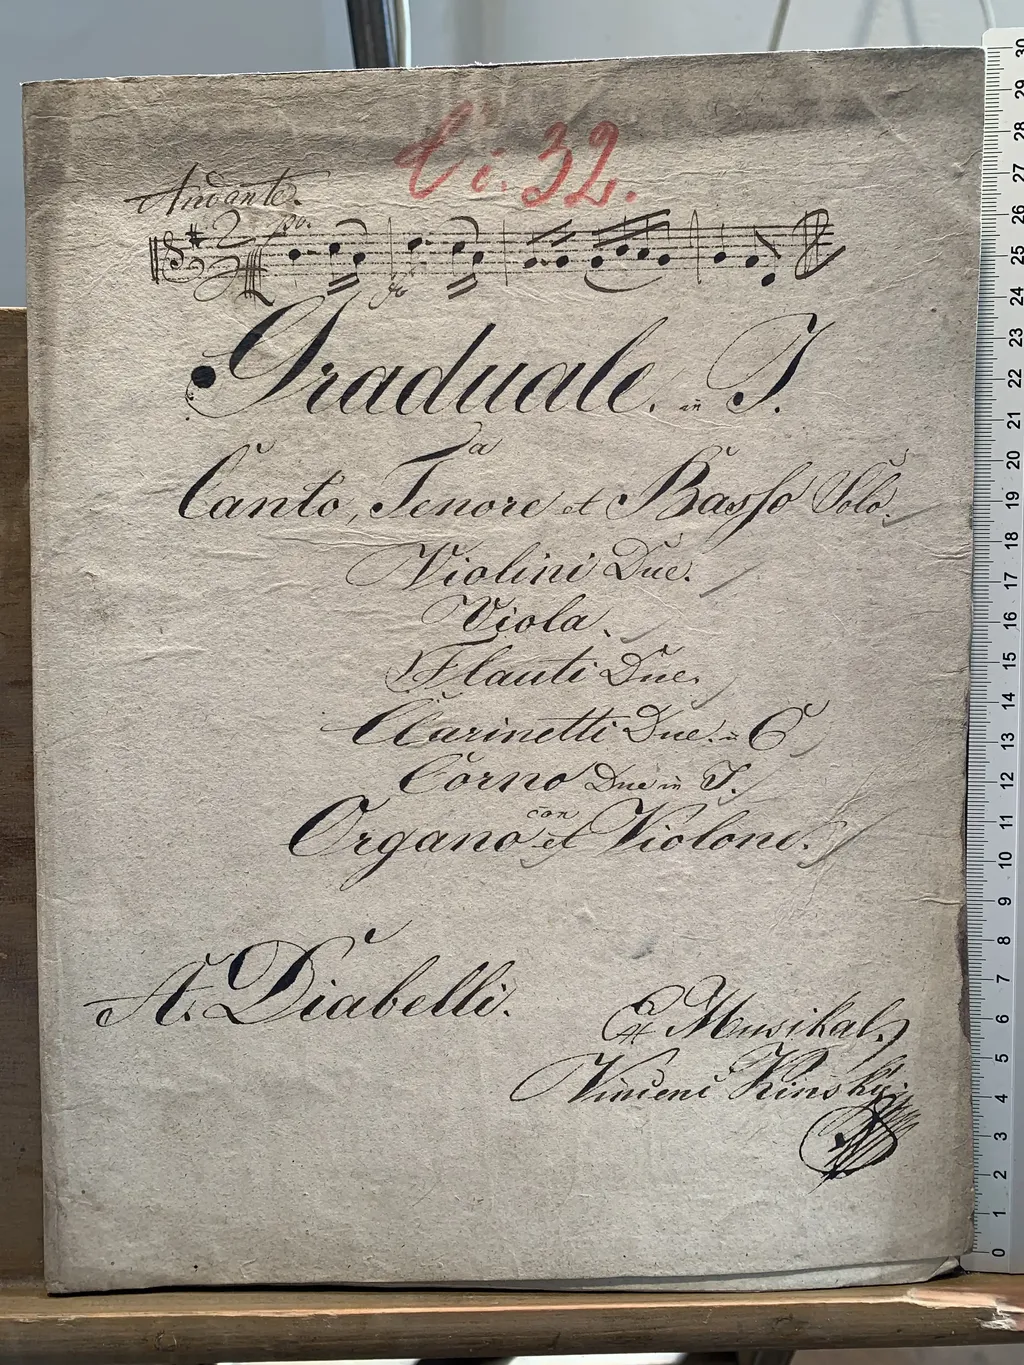 Či. 32.
Andante.
po.
Graduale. in F.
a
Canto, Tenore et Basso Solo.
Violini Due.
Viola.
Flauti Due.
Clarinetti Due. in C
Corno Due in F.
con
Organo et Violone.
A. Diabelli.
Ex Musikal.
Vinceni Kinsky.
30
29
28
27
26
25
24
23
22
21
20
19
18
17
16
15
14
13
12
11
10
9
8
7
6
5
4
3
2
1
0